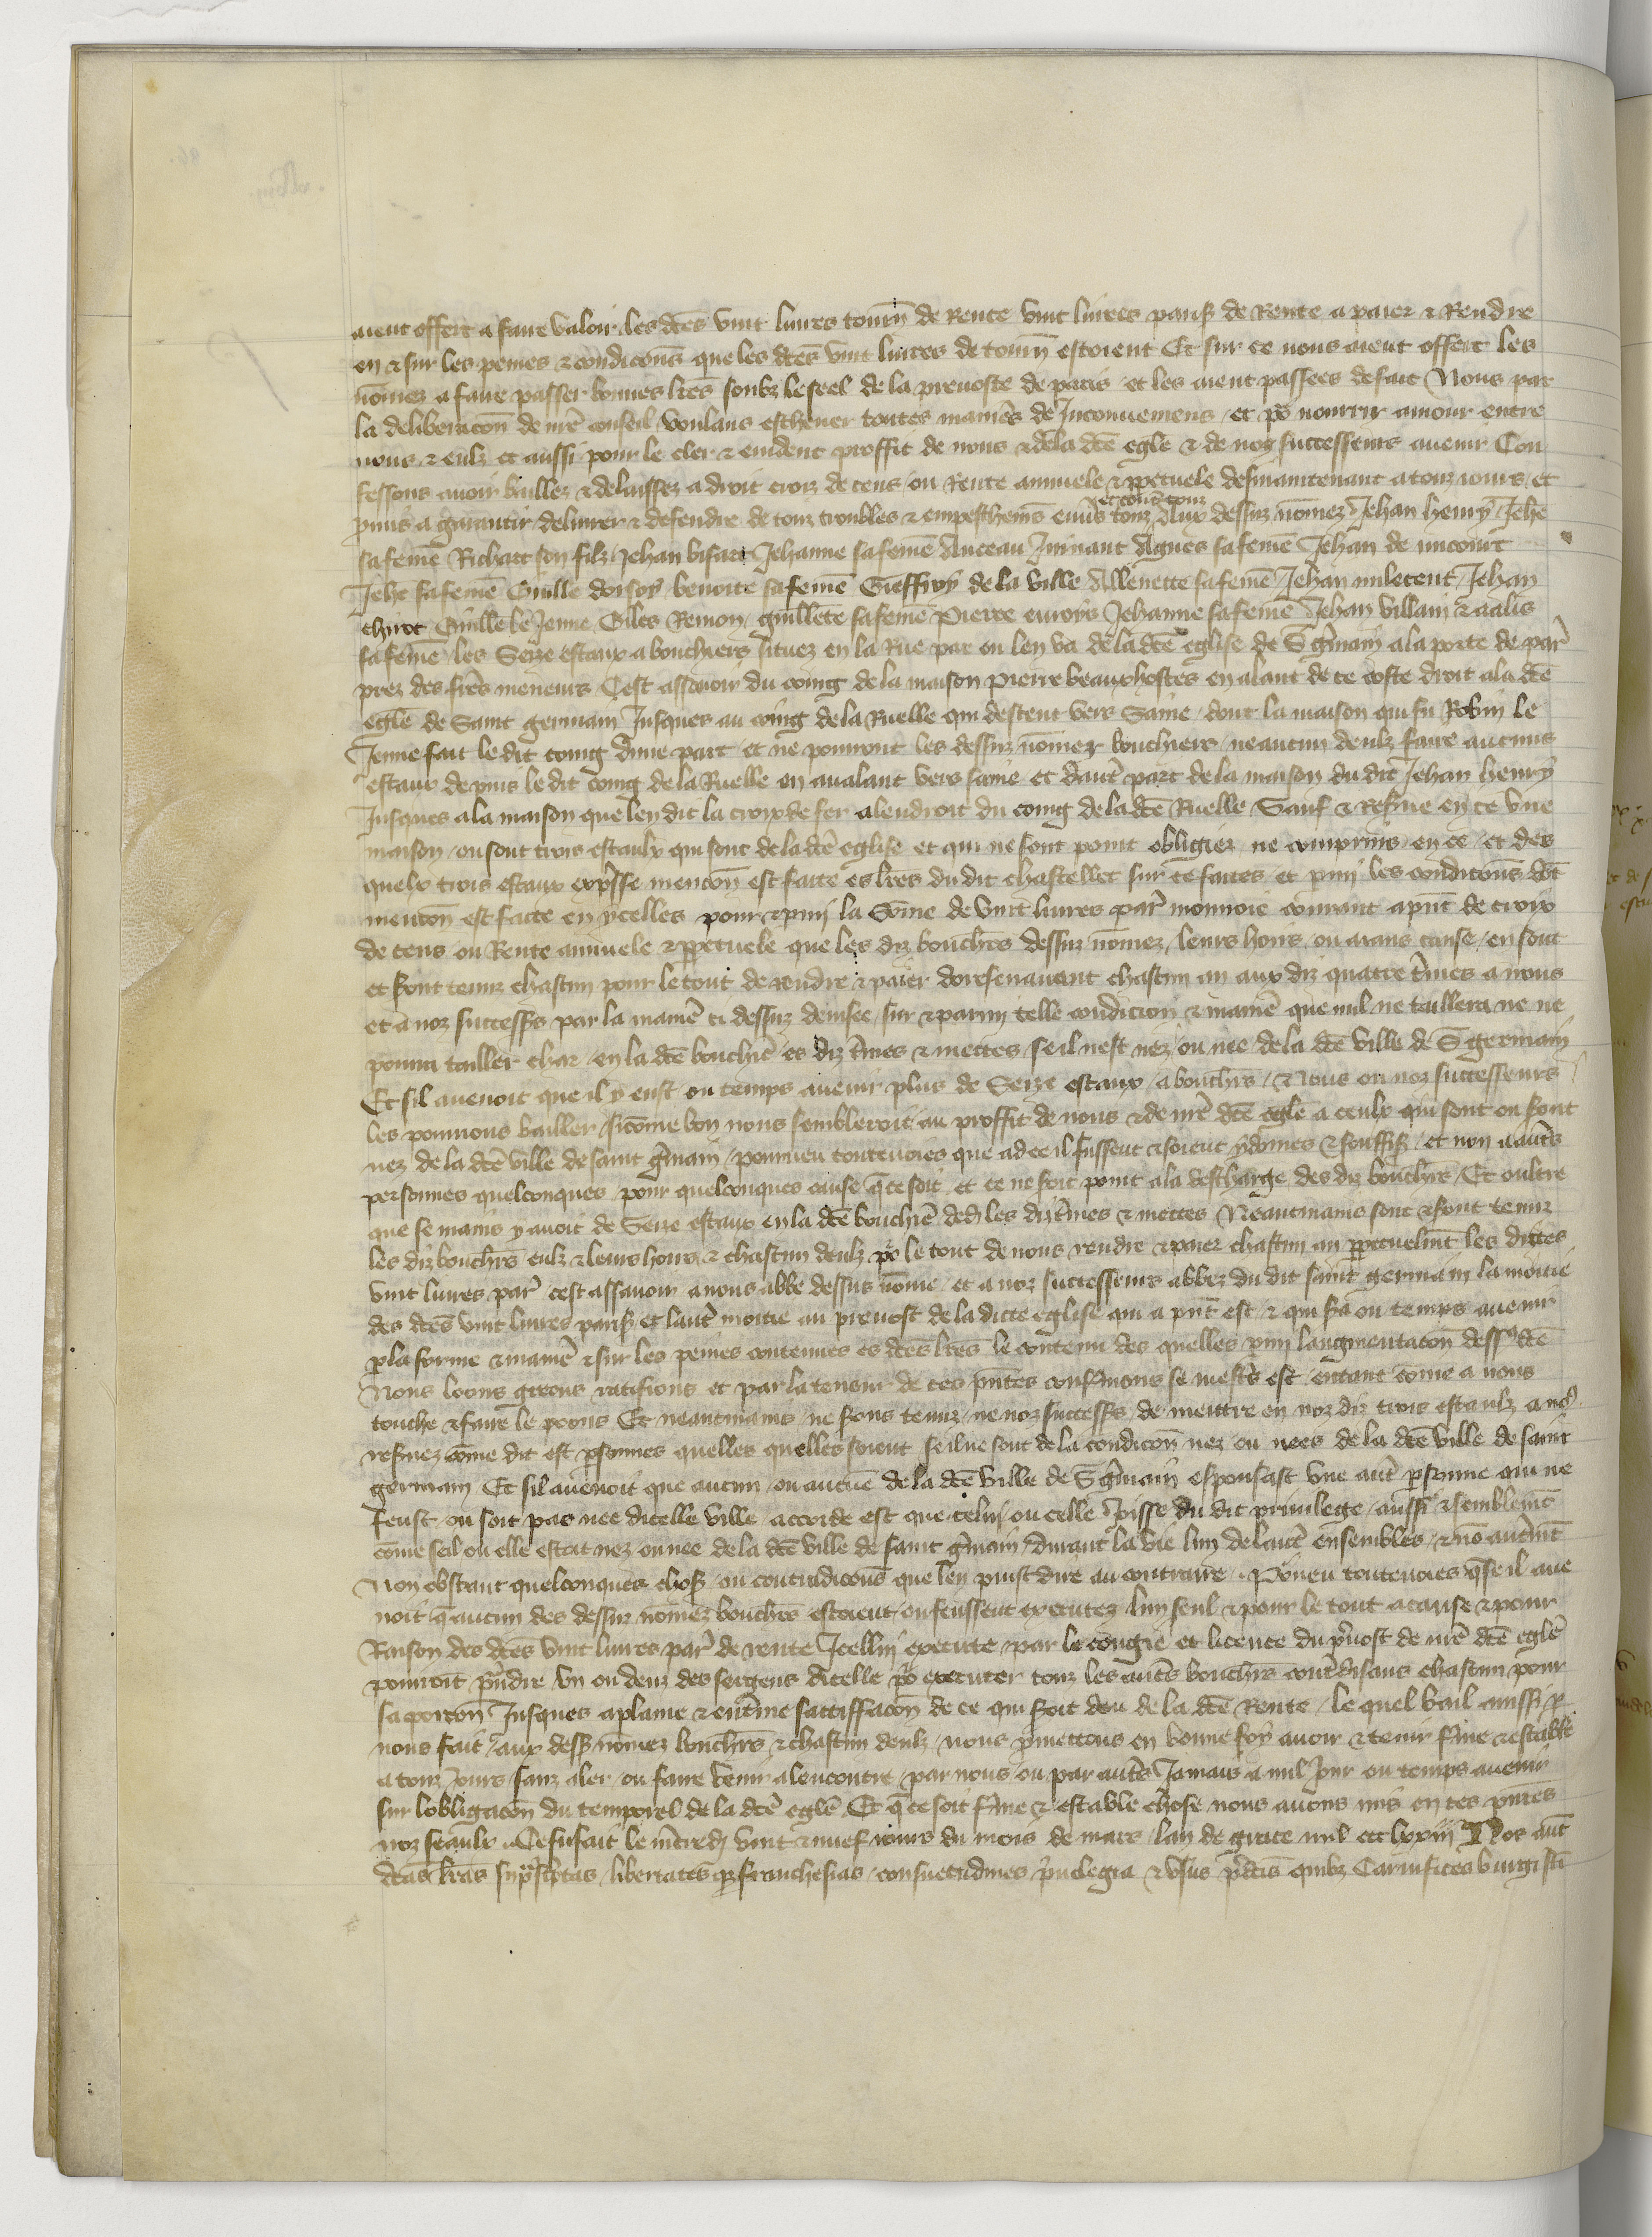 aient offert a faire valoir les dc̄es vint livres tourn̄ de Rente vint livres paris de Rente a paier & Rendre
en & sur les peines & condicōns que les dc̄es vint livres de tourn̄ estoient Et sur ce nous aient offert les
nōmez a faire passer bonnes lr̄es soubz le seel de la prevoste de paris et les aient passees de fait Nous par
la deliberacōn de nr̄e conseil voulans eschever toutes manier̄s de Inconveniens et po͛ nourrir amour entre
nous & eulz et aussi pour le cler & evident proffit de nous & de la dc̄e egl̄e & de noz successeurs avenir Con
fessons avoir baillez & delaissez a droit croiz de cens ou Rente annuele & ꝑpetuele desmaintenant a touz iours et
ꝑmis a garantir delivrer & defendre de touz troubles & empeschem̄s envers touz Aux dessuz nōmez Jehan henry Jeh̄e
sa fem̄e Richart son filz Jehan bisart Jehanne sa fem̄e Anceau Agnes sa fem̄e Jehan de
Jeh̄e sa fem̄e Guille dorsoy benoite sa fem̄e Gieffroy de la ville Alienette sa fem̄e Jehan milecent Jehan
Guill̄e le Jenne Giles Remon guillete sa fem̄e Pierre Jehanne sa fem̄e Jehan villain & aalis
sa fem̄e les Seze estaux a bouchiers situez en la Rue par ou len va de la dc̄e eglise de S̄ gmain a la porte de par̄
prez des fr̄es meneurs Cest assavoir du coing de la maison pierre beauxhostes en alant de ce coste droit a la dc̄e
egl̄e de Saint germain Jusques au coing de la Ruelle qui descent vers Saine dont la maison qui fu Robin le
Jenne fait le dit coing dune part et ne pourront les dessuz nōmez bouchiers ne aucun deulz faire aucuns
estaux depuis le dit coing de la Ruelle en avalant vers saine et dautr̄e part de la maison du dit Jehan henry
Jusques a la maison que len dit la croix de fer a lendroit du coing de la dc̄e Ruelle Sauf & Reserve en ce une
maison ou sont trois estaulx qui sont de la dc̄e eglise et qui ne sont point obligiez ne comprins en ce et des
quelx trois estaux expresse mencōn est faite es lr̄es du dit chastellet sur ce faites et ꝑmi les condicōns dōt
mencōn est faite en ycelles pour & ꝑmi la Sōme de vint livres par̄ monnoie courant a pn̄t de croix
de cens ou Rente annuele & ꝑpetuele que les diz bouchr̄s dessuz nōmez leurs hoirs ou aians cause en sont
et seront tenuz chascun pour le tout de rendre & paier doresenavant chascun an aux diz quatre t̄mes a nous
et a noz success̄rs par la manier̄ ci dessuz devisee sur & parmi telle condicion & manier̄ que nul ne taillera ne ne
pourra tailler char en la dc̄e boucher̄ es diz t̄mes & mectes se il nest nez ou nee de la dc̄e ville de S̄ germain
Et sil avenoit que il y eust ou temps avenir plus de Seize estaux a bouchr̄s Nous ou noz successeurs
les pourrions bailler si cōme bon nous sembleroit au proffit de nous & de nr̄e dc̄e egl̄e a ceulx qui sont ou sont
nez de la dc̄e ville de saint ḡmain pourveu toutevoies que ad ce il fussent & soient ydoines & souffis et non a autr̄s
personnes quelconques pour quelconques cause q̄ ce soit et ce ne soit point a la descharge des diz bouchr̄s Et oultre
que se mains y avoit de Seze estaux en la dc̄e boucher̄ dedēs les diz t̄mes & mectes Neantmains sont & seront tenuz
les diz bouchr̄s eulz & leurs hoirs & chascun deulz po͛ le tout de nous rendre & paier chascun an ꝑpetuelmt̄ les dictes
vint livres par̄ cest assavoir a nous abbe dessus nōme et a noz successeurs abbez du dit saint germain la moitie
des dc̄es vint livres paris et lautr̄ moitie au prevost de la dicte eglise qui a pn̄t est & qui sera ou temps avenir
ꝑ la forme & manier̄ & sur les peines contenues es dc̄es lr̄es le contenu des quelles ꝑmi laugmentacōn dess̄ dc̄e
Nous loons greons ratifions et par la teneur de ces pn̄tes confirmons se mest̄r est entant cōme a nous
touche & faire le poons Et neantmains ne serons tenuz ne noz success̄rs de mettre en noz diz trois estaulz a no͛
reservez cōme dit est ꝑsonnes quelles quelles soient se il ne sont de la condicōn nez ou nees de la dc̄e ville de saint
germain Et sil avenoit que aucun ou aucūe de la dc̄e ville de S̄ ḡmain espousast une autr̄ ꝑsonne qui ne
feust ou soit pas nee dicelle ville accorde est que celui ou celle Joisse du dit privilege aussi & semblemt̄
cōme se il ou elle estoit nez ou nee de la dc̄e ville de saint ḡmain durant la vie lun de lautr̄ ensembles & nō autr̄mt̄
Non obstant quelconques chos ou contradicōns que len puist dire au contraire Po͛veu toutevoies q̄ se il ave
noit q̄ aucun des dessuz nōmez bouchr̄s estoient ou feussent executez luy seul & pour le tout a cause & pour
Raison des dc̄es vint livres par̄ de rente Icellui execute par le congie et licence du p̄vost de nr̄e dc̄e egl̄e
pourroit prendre un ou deux des sergens dicelle po͛ executer touz les autr̄s bouchr̄s contredisans chascun pour
sa porcōn Jusques a plaine & entier̄ satisfacōn de ce qui seroit deu de la dc̄e Rente le quel bail aussi ꝑ
nous fait aux dess̄ nōmez bouchr̄s & chascun deulz nous ꝓmettons en bonne foy avoir & tenir f̄me & estable
a touz Jours sanz aler ou faire venir a lencontre par nous ou par autr̄s Jamais a nul Jour ou temps avenir
sur lobligacōn du temporel de la dc̄e egl̄e Et q̄ ce soit f̄me & estable chose nous avons mis en ces pn̄tes
noz seaulx Ce fu fait le m̄credi vint & nuef iours du mois de mars lan de grace mil ccc lxxiiij Nos aut̄
dc̄as lr̄as sup͛sc̄ptas libertates q̨ franchesias consuetudines p͛vilegia & usus p̄dc̄is quibz Carnifices burgi sc̄i